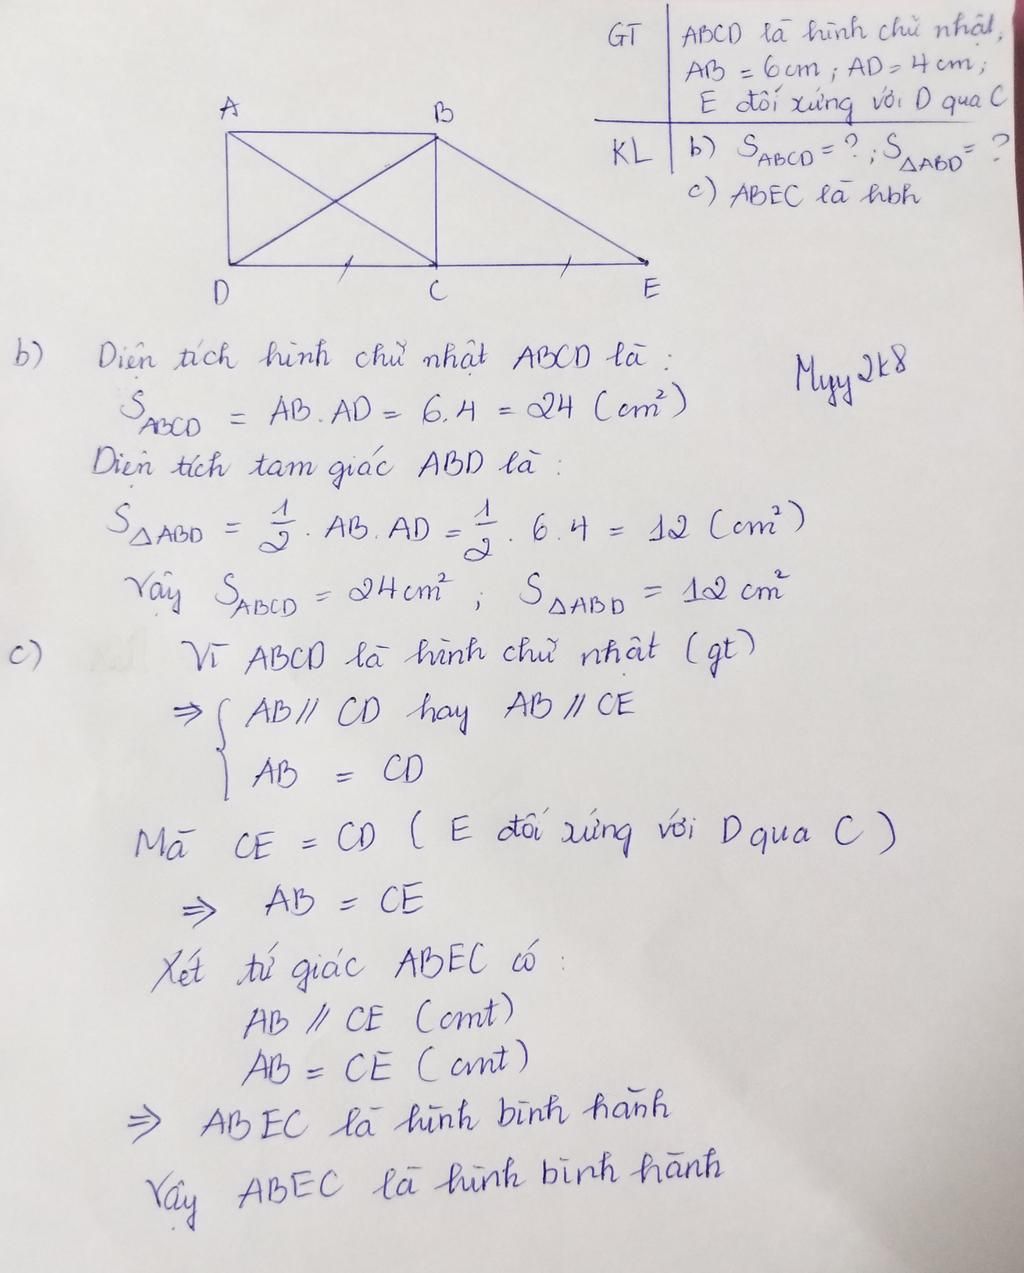 GT ABCD là hình chữ nhật,
AB = 6cm ; AD = 4cm ;
E đối xứng với D qua C
KL b) S_ABCD = ? ; S_ΔABD = ?
c) ABEC là hbh
A B
D C E
b) Diện tích hình chữ nhật ABCD là :
Myy2k8
S_ABCD = AB . AD = 6.4 = 24 (cm²)
Diện tích tam giác ABD là :
S_ΔABD = 1/2 . AB. AD = 1/2 . 6.4 = 12 (cm²)
Vậy S_ABCD = 24cm² ; S_ΔABD = 12 cm²
c) Vì ABCD là hình chữ nhật (gt)
⇒ { AB // CD hay AB // CE
AB = CD
Mà CE = CD ( E đối xứng với D qua C )
⇒ AB = CE
Xét tứ giác ABEC có :
AB // CE (cmt)
AB = CE (cmt)
⇒ ABEC là hình bình hành
Vậy ABEC là hình bình hành